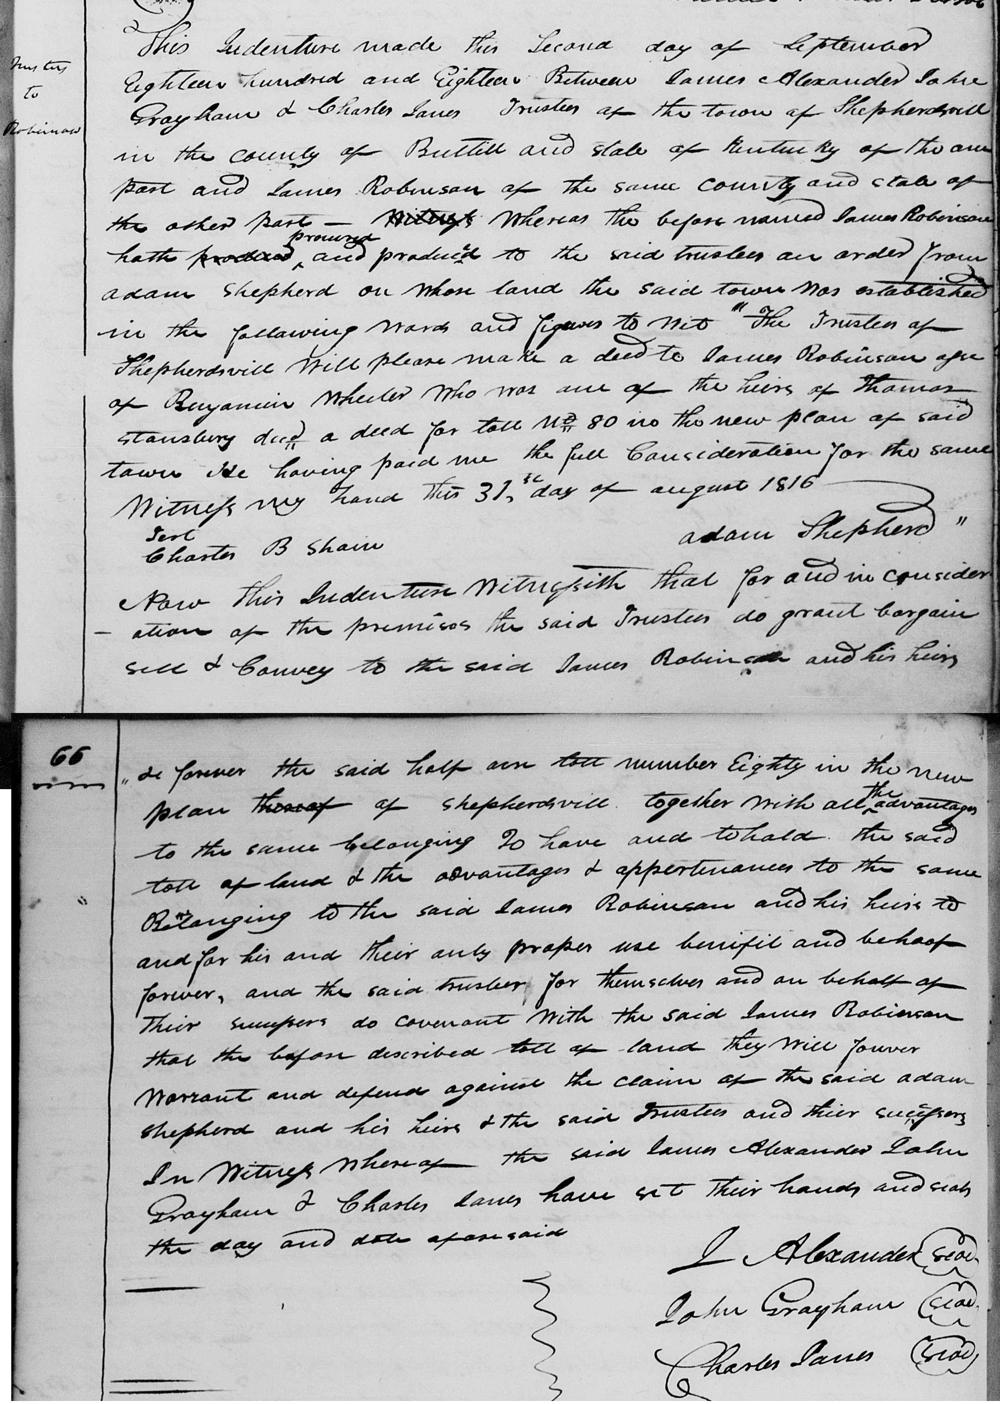 Trustees
to
Robinson
This Indenture made this Second day of September
Eighteen hundred and Eighteen Between James Alexander John
Grayham & Charles Janes Trustees of the town of Shepherdsvill
in the county of Bullitt and state of Kentucky of the one
part and James Robinson of the same county and state of
the other part — Witness Whereas the before named James Robinson
hath produced procured and produc'd to the said trustees an order from
adam Shepherd on whose land the said town was established
in the following words and figures to wit "The Trustees of
Shepherdsvill will please make a deed to James Robinson agn
of Benjamin Wheeler who was one of the heirs of Thomas
Stansbury decd a deed for lott No 80 in the new plan of said
town He having paid me the full Consideration for the same
Witness my hand this 31st day of august 1816
adam Shepherd "
Test
Charles B Shain
Now this Indenture Witnesseth that for and in consider
-ation of the premises the said Trustees do grant bargain
sell & Convey to the said James Robinson and his heirs
66
" &c forever the said half acre lott number Eighty in the new
plan thereof of Shepherdsvill together with all the advantages
to the same belonging To have and to hold the said
lott of land & the advantages & appertenances to the same
Belonging to the said James Robinson and his heirs to
and for his and their only proper use benifit and behoof
forever, and the said trustees for themselves and on behalf of
their sucessors do covenant with the said James Robinson
that the before described lott of land they will forever
warrant and defend against the claim of the said adam
shepherd and his heirs & the said Trustees and their sucessors
In Witness Whereof the said James Alexander John
Grayham & Charles Janes have set their hands and seals
the day and date aforesaid
J Alexander (seal)
John Grayham (seal)
Charles Janes (seal)